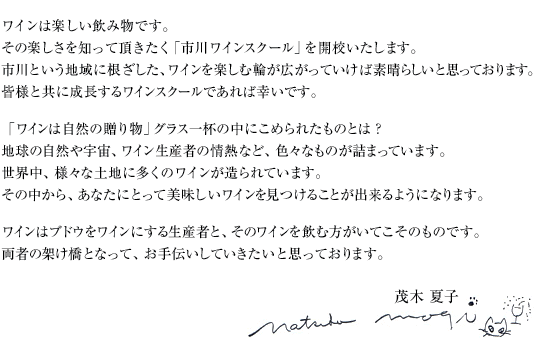 ワインは楽しい飲み物です。
その楽しさを知って頂きたく「市川ワインスクール」を開校いたします。
市川という地域に根ざした、ワインを楽しむ輪が広がっていけば素晴らしいと思っております。
皆様と共に成長するワインスクールであれば幸いです。
「ワインは自然の贈り物」グラス一杯の中にこめられたものとは？
地球の自然や宇宙、ワイン生産者の情熱など、色々なものが詰まっています。
世界中、様々な土地に多くのワインが造られています。
その中から、あなたにとって美味しいワインを見つけることが出来るようになります。
ワインはブドウをワインにする生産者と、そのワインを飲む方がいてこそのものです。
両者の架け橋となって、お手伝いしていきたいと思っております。
茂木 夏子
Natsuko Mogi